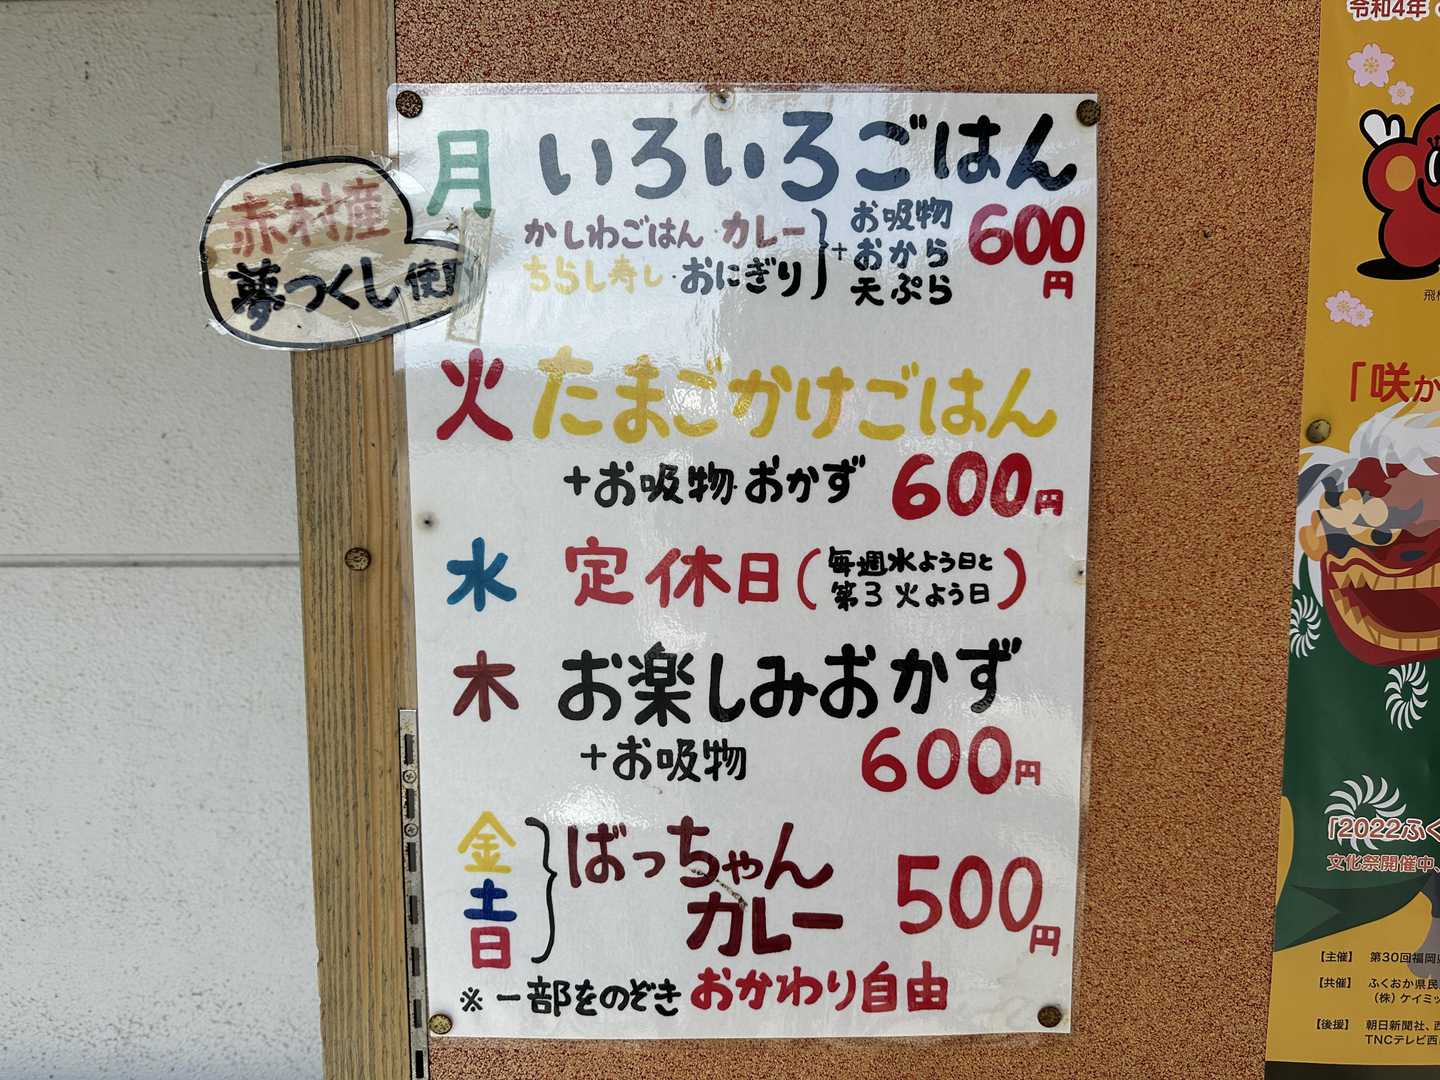 月 いろいろごはん
かしわごはん・カレー
ちらし寿し・おにぎり
+
お吸物
おから
天ぷら
600円
赤村産
夢つくし使用
火 たまごかけごはん
+お吸物・おかず 600円
水 定休日(毎週水よう日と
第3火よう日)
木 お楽しみおかず
+お吸物 600円
金
土
日
ばっちゃん
カレー
500円
※一部をのぞきおかわり自由
令和4年
「咲か
「2022ふく
文化祭開催中、
【主催】 第30回福岡
【共催】 ふくおか県民
(株)ケイミッ
【後援】 朝日新聞社、西
TNCテレビ西